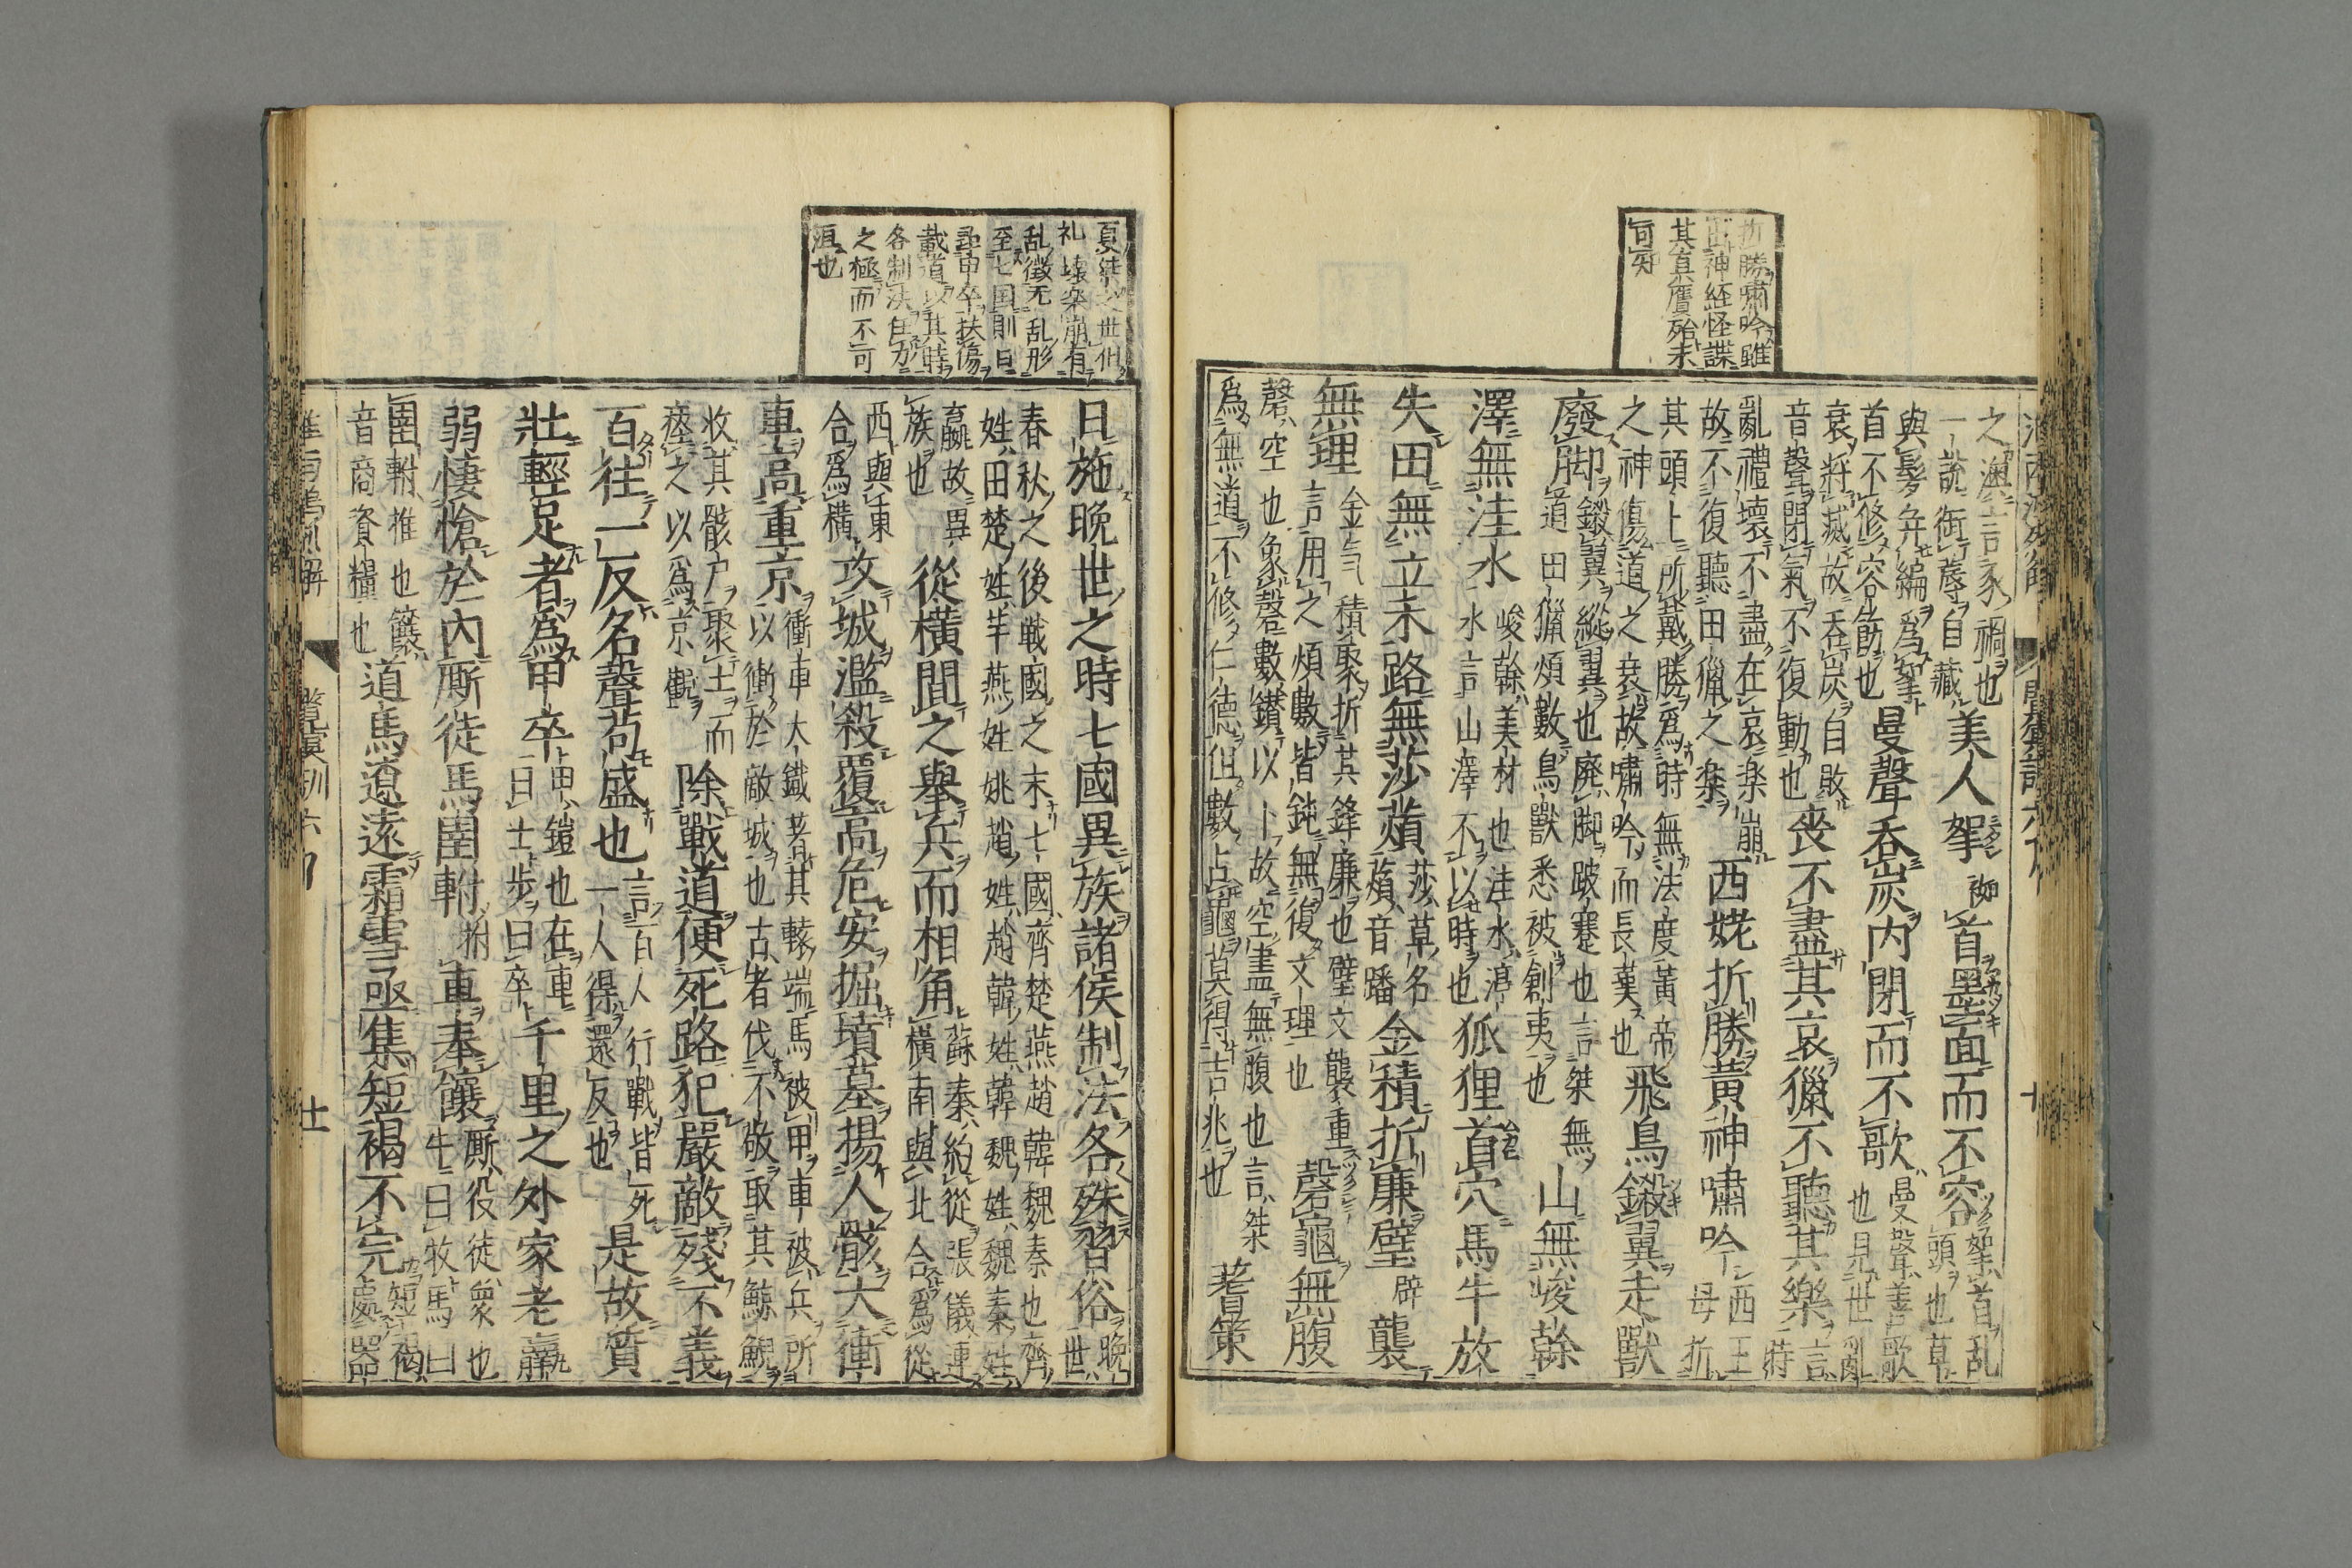 折勝嘯吟雖
出神経怪諜
其真贋殆未
可知
之溷言豕禍也
一説銜蓐自藏
美人挐首墨面而不容
挐首乱
頭也草
與髪弁編爲挐
首不修容飾也
曼聲吞炭内閉而不歌
曼聲善歌
也見世亂
衰將滅故吞炭自敗
音聲閉氣不復動也
喪不盡其哀獵不聽其樂
言
時
亂禮壞不盡在哀楽崩
故不復聽田獵之楽
西姥折勝黄神嘯吟
西王
母折
其頭上所戴勝爲時無法度黄帝
之神傷道之衰故嘯吟而長嘆也
飛鳥鎩翼走獸
廢脚
鎩翼縱翼也廢脚跛蹇也言桀無
道田獵煩數鳥獸悉被創夷也
山無峻榦
澤無洼水
峻榦美材也洼水渟
水言山澤不以時也
狐狸首穴馬牛放
失田無立禾路無莎薠
莎草名
薠音蟠
金積折廉璧
辟
襲
無理
金气積聚折其鋒廉也璧文襲重
言用之煩數皆鈍無復文理也
磬龜無腹
磬空也象磬數鑚以卜故空盡無腹也言桀
爲無道不修仁德但數占龜莫得吉兆也
蓍策
夏桀之世但
礼壊楽崩有
乱徴无乱形
至七国則日
尋甲卒扶傷
載道以其時
各制法任力
之極而不可
洹也
日施晩世之時七國異族諸侯制法各殊習俗
晩
世
春秋之後戦國之末七國齊楚燕趙韓魏秦也齊
姓田楚姓芊燕姓姚趙姓趙韓姓韓魏姓魏秦姓
嬴故異
族也
從横間之舉兵而相角
蘇秦約從張儀連
横南與北合爲從
西與東
合爲横
攻城濫殺覆高危安掘墳墓揚人骸大衝
車高重京
衝車大鐵著其轅端馬被甲車被兵所
以衝於敵城也古者伐不敬取其鯨鯢
收其骸尸聚土而
瘞之以爲京觀
除戰道便死路犯嚴敵殘不義
百往一反名聲苟盛也
言百人行戰皆死
一人得還反也
是故質
壯輕足者爲甲卒
甲鎧也在車
曰士步曰卒
千里之外家老羸
弱悽愴於内廝徒馬圉軵
拊
車奉饟
廝役徒衆也
牛曰牧馬曰
圉軵推也饟
音商資糧也
道馬遼遠霜雪亟集短褐不完
短褐
處器
淮南鴻烈解
覽冥訓六
十一